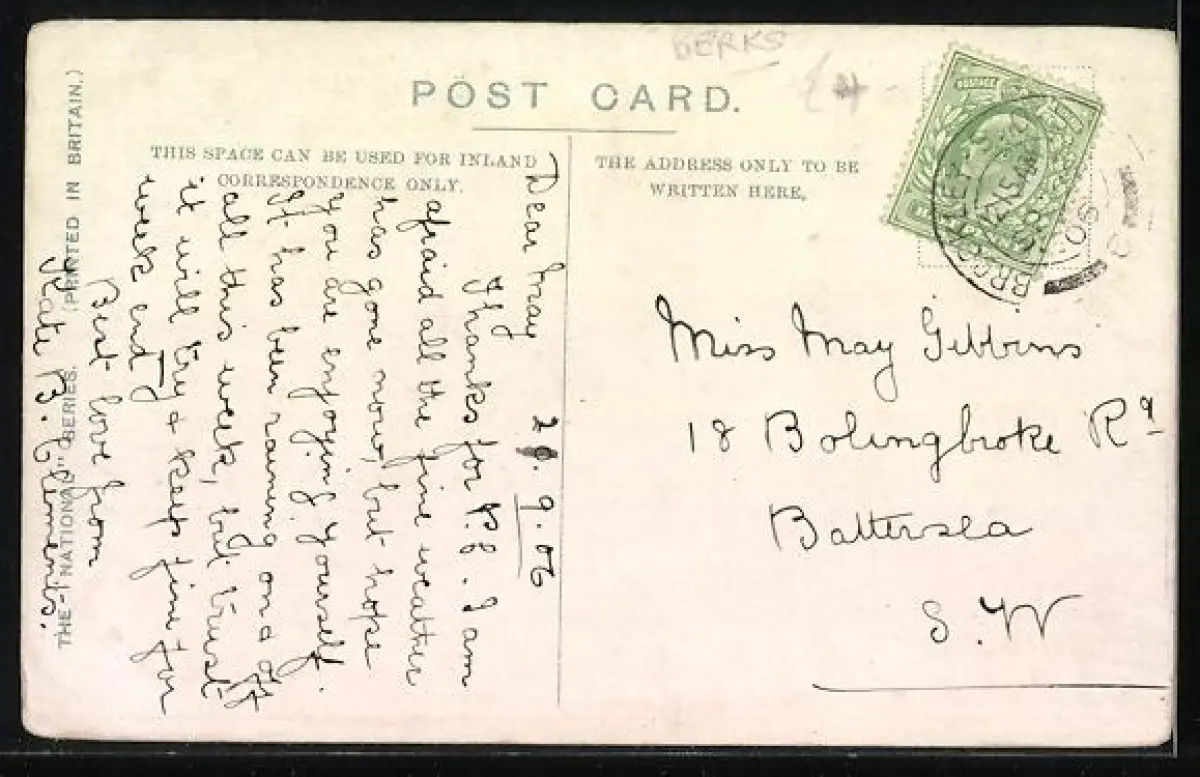 BERKS
POST CARD.
THIS SPACE CAN BE USED FOR INLAND
CORRESPONDENCE ONLY.
THE ADDRESS ONLY TO BE
WRITTEN HERE,
THE "NATIONAL" SERIES. (PRINTED IN BRITAIN.)
9.06
Dear May
Thanks for P.C. I am
afraid all the fine weather
has gone now, but hope
you are enjoying yourself.
It has been raining on & off
all this week, but trust
it will try & keep fine for
week end
Best love from
Kate B. Clements.
Miss May Gibbins
18 Bolingbroke Rd
Battersea
S.W